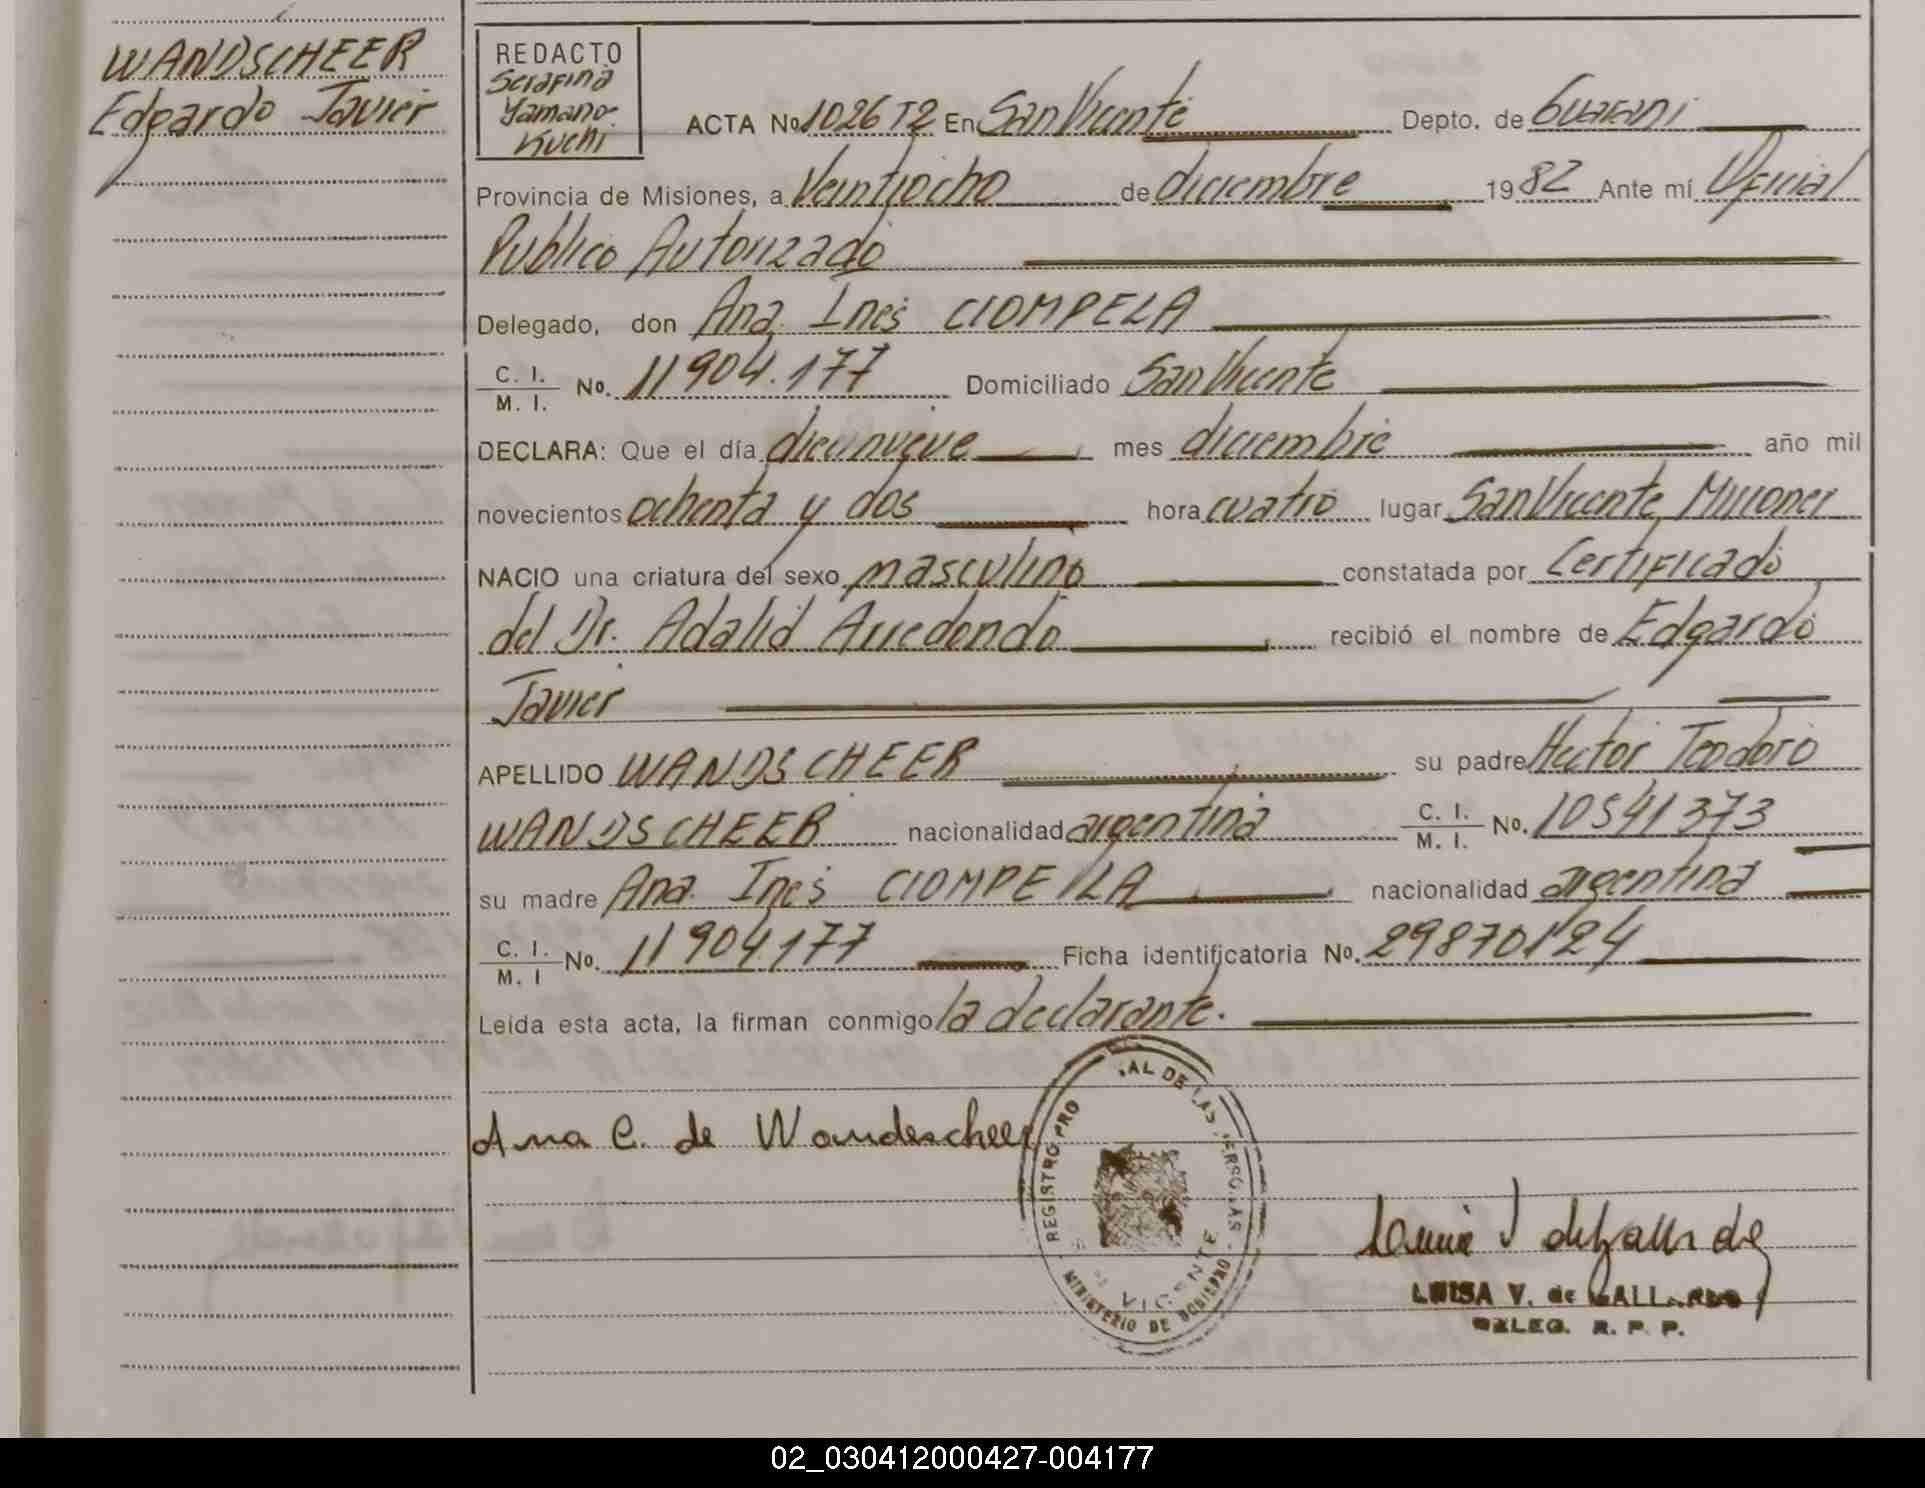 WANDSCHEER
Edgardo Javier
REDACTO
Serafina
Yamano-
Kuchi
ACTA No 1026 T2 En San Vicente Depto. de Guarani
Provincia de Misiones, a Veintiocho de diciembre 19 82 Ante mí Oficial
Publico Autorizado
Delegado, don Ana Ines CIOMPELA
C. I. / M. I. No. 11904.177 Domiciliado San Vicente
DECLARA: Que el día diecinueve mes diciembre año mil
novecientos ochenta y dos hora cuatro lugar San Vicente Misiones
NACIO una criatura del sexo masculino constatada por Certificado
del Dr. Adalid Arredondo recibió el nombre de Edgardo
Javier
APELLIDO WANDSCHEER su padre Hector Teodoro
WANDSCHEER nacionalidad argentina C. I. / M. I. No. 10541373
su madre Ana Ines CIOMPELA nacionalidad argentina
C. I. / M. I No. 11904177 Ficha identificatoria No. 29870124
Leída esta acta, la firman conmigo la declarante.
Ana C. de Wandescheer
REGISTRO PRO AL DE LAS PERSONAS
VICENTE
MINISTERIO DE GOBIERNO
LUISA V. de GALLARDO
DELEG. R. P. P.
02_030412000427-004177